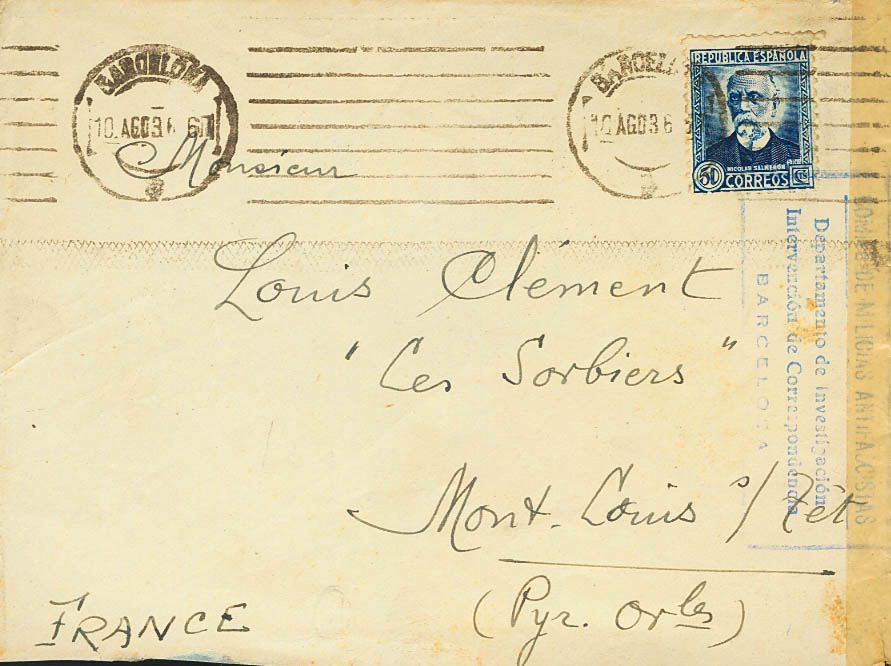 BARCELONA
10.AGO36
BARCELONA
10 AGO36
REPUBLICA ESPAÑOLA
NICOLAS SALMERON
50 CORREOS CTS
Monsieur
Louis Clément
"Les Sorbiers"
Mont-Louis s/Têt
(Pyr. Orles)
FRANCE
COMITE DE MILICIAS ANTIFASCISTAS
Departamento de Investigación
Intervención de Correspondencia
BARCELONA